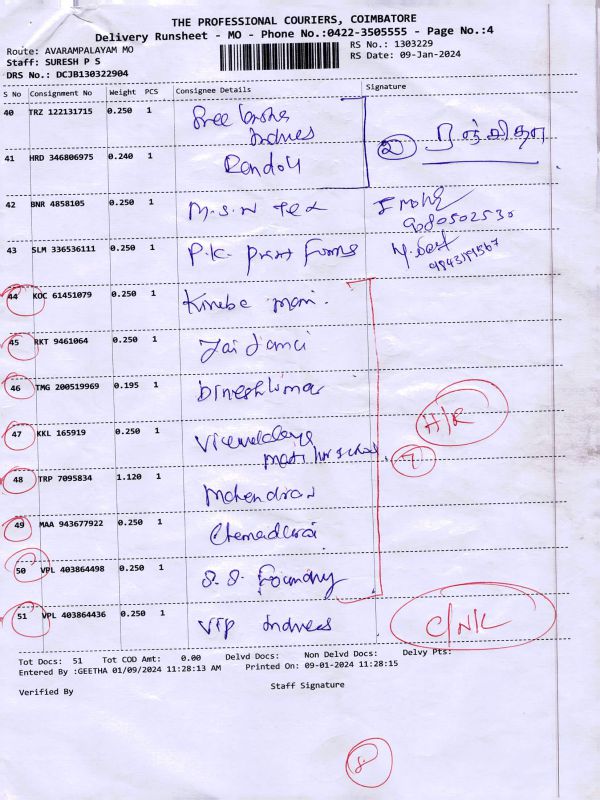 THE PROFESSIONAL COURIERS, COIMBATORE
Delivery Runsheet - MO - Phone No.:0422-3505555 - Page No.:4
Route: AVARAMPALAYAM MO
RS No.: 1303229
Staff: SURESH P S
RS Date: 09-Jan-2024
DRS No.: DCJB130322904
S No Consignment No Weight PCS Consignee Details Signature
40 TRZ 122131715 0.250 1
41 HRD 346806975 0.240 1
2
42 BNR 4858105 0.250 1 M.S.W Tex
9080502530
43 SLM 336536111 0.250 1 P.K.
9843191567
44 KOC 61451079 0.250 1 mani.
45 RKT 9461064 0.250 1 Jai
46 TMG 200519969 0.195 1 Dineshkumar
H/R
47 KKL 165919 0.250 1
7
48 TRP 7095834 1.120 1 Mahendran
49 MAA 943677922 0.250 1
50 VPL 403864498 0.250 1 S.S. Foundry
51 VPL 403864436 0.250 1 VIP
C/N/L
Tot Docs: 51 Tot COD Amt: 0.00 Delvd Docs: Non Delvd Docs: Delvy Pts:
Entered By :GEETHA 01/09/2024 11:28:13 AM Printed On: 09-01-2024 11:28:15
Verified By Staff Signature
8